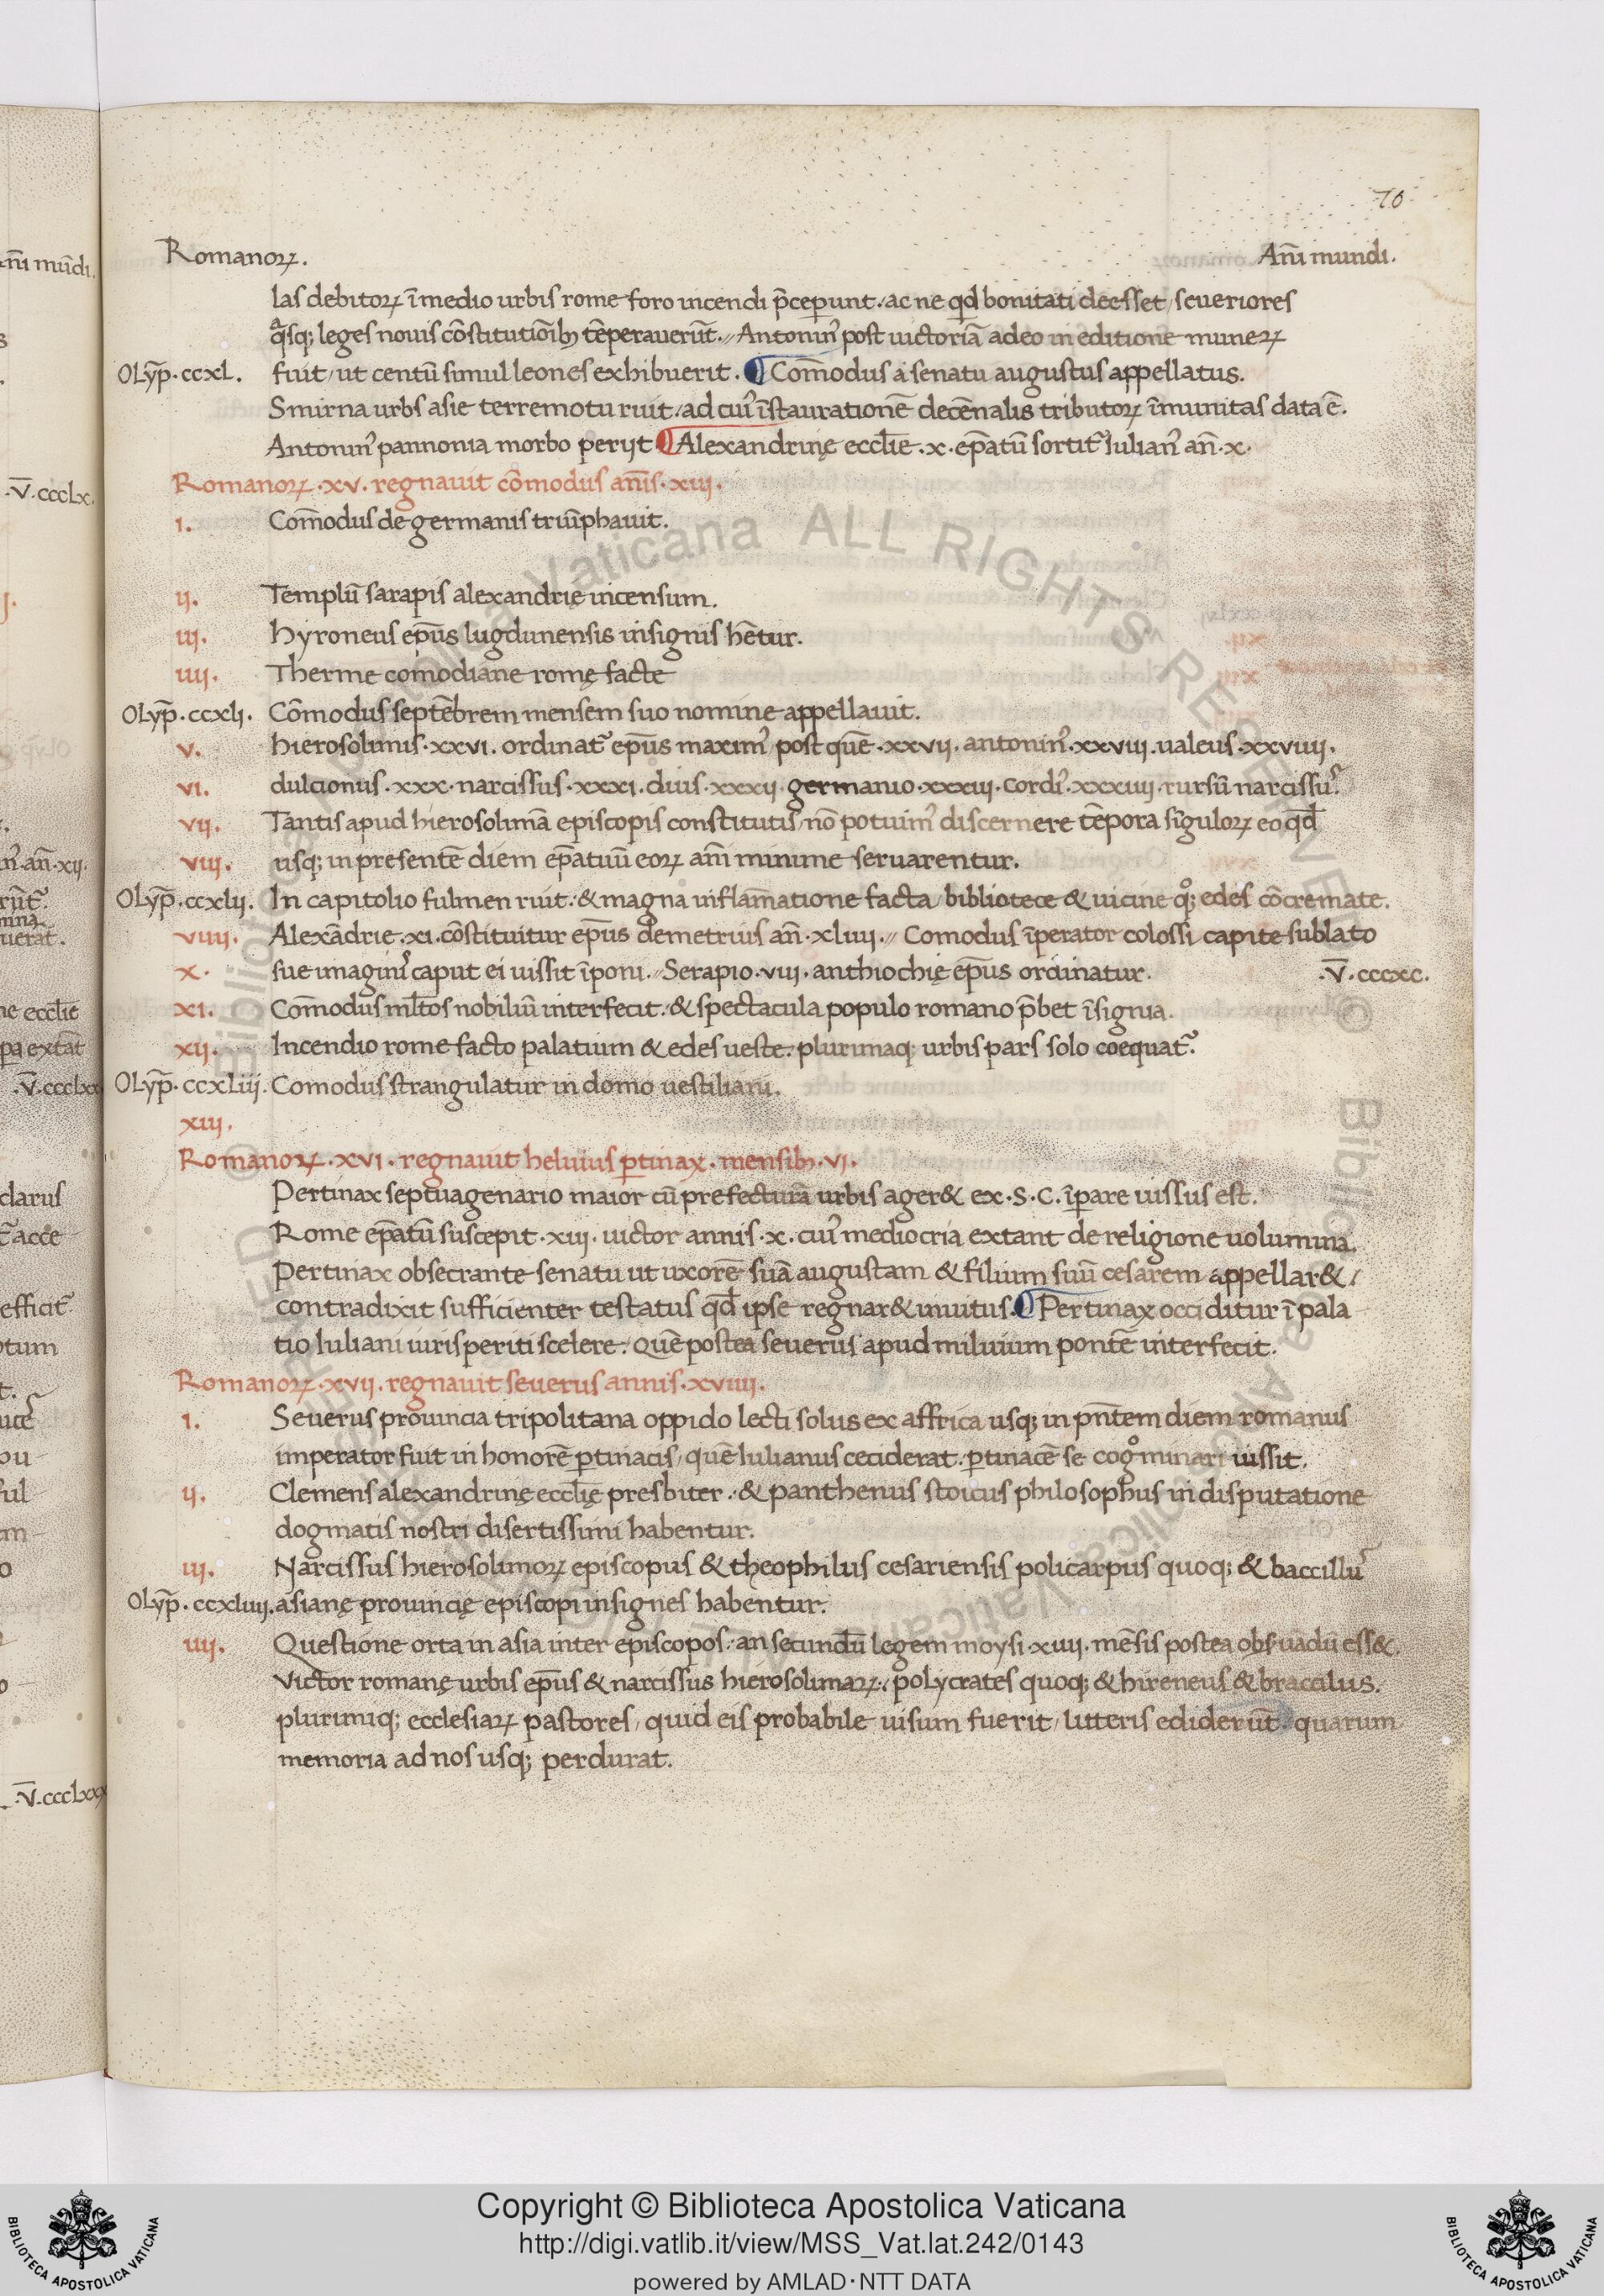 70
Romanoꝝ. Añi mundi.
las debitoꝝ ĩ medio urbis rome foro incendi p̃ceperunt. ac ne qđ bonitati deesset / seueriores
q̃sq; leges nouis cõstitutiõib; tẽperauerũt. Antonin᾽ post uictoriã adeo in editione muneꝝ
Olyp̃. ccxl. fuit / ut centũ simul leones exhibuerit. ¶ Com̃odus a senatu augustus appellatus.
Smirna urbs asie terremotu ruit. ad cui᾽ ĩstaurationẽ decẽnalis tributoꝝ ĩmunitas data ẽ.
Antonin᾽ pannonia morbo perijt ¶ Alexandrinę eccl̃ie. x. ep̃atũ sortit᾽ Iulian᾽ añ. x.
Romanoꝝ. xv. regnauit cõmodus añis. xiii.
i. Com̃odus de germanis triũphauit.
ii. Templũ sarapis alexandrię incensum.
iii. hyroneus ep̃us lugdunensis insignis hẽtur.
iiii. Therme comodiane romę facte
Olyp̃. ccxli. Cõmodus septẽbrem mensem suo nomine appellauit.
v. hierosolimis. xxvi. ordinat᾽ ep̃us maxim᾽ / post quẽ. xxvii. antonin᾽. xxviii. ualeus. xxviiii.
vi. dulcionus. xxx. narcissus. xxxi. dius. xxxii. germanio. xxxiii. cordi᾽. xxxiiii. rursũ narcissu᾽.
vii. Tantis apud hierosolimã episcopis constitutis / nõ potuim᾽ discernere tẽpora sĩguloꝝ eo qđ
viii. usq; in presentẽ diem ep̃atuũ eoꝝ añi minime seruarentur.
Olyp̃. ccxlii. In capitolio fulmen ruit. & magna inflam̃atione facta / bibliotece & uicine qͦ; edes cõcremate.
viiii. Alexãdrie. xi. cõstituitur ep̃us demetrius añ. xliii. Comodus ĩperator colossi capite sublato
x. sue imagini᾽ caput ei iussit ĩponi. Serapio. viii. anthiochię ep̃us ordinatur. .v̅. cccxc.
xi. Com̃odus ml̃tos nobiliũ interfecit. & spectacula populo romano p̃bet ĩsignia.
xii. Incendio rome facto palatium & edes ueste. plurimaq; urbis pars solo coequat᾽.
Olyp̃. ccxliii. Comodus strangulatur in domo uestiliani.
xiii.
Romanoꝝ. xvi. regnauit heluius ꝑtinax. mensib;. vi.
Pertinax septuagenario maior cũ prefecturã urbis ager& ex. S. C. ĩpare iussus est.
Rome ep̃atũ suscepit. xiii. uictor annis. x. cui᾽ mediocria extant de religione uolumina.
Pertinax obsecrante senatu ut uxorẽ suã augustam & filium suũ cesarem appellar& /
contradixit sufficienter testatus qđ ipse regnar& inuitus. ¶ Pertinax occiditur ĩ pala
tio Iuliani iurisperiti scelere. quẽ postea seuerus apud miluium pontẽ interfecit.
Romanoꝝ. xvii. regnauit seuerus annis. xviii.
i. Seuerus prouincia tripolitana oppido lecti solus ex affrica usq; in pñtem diem romanus
imperator fuit in honorẽ ꝑtinacis / quẽ Iulianus ceciderat. ꝑtinacẽ se cogͦminari iussit.
ii. Clemens alexandrinę eccl̃ię presbiter. & panthenus stoicus philosophus in disputatione
dogmatis nostri disertissimi habentur.
iii. Narcissus hierosolimoꝝ episcopus & theophilus cesariensis policarpus quoq; & baccillu᾽
Olyp̃. ccxliiii. asianę prouincię episcopi insignes habentur.
iiii. Questione orta in asia inter episcopos. an secundũ legem moysi. xiiii. mẽsis postea obs᾽uãdũ ess&.
Victor romanę urbis ep̃us & narcissus hierosolimaꝝ. polycrates quoq; & hireneus & braccilus.
plurimiq; ecclesiaꝝ pastores / quid eis probabile uisum fuerit / litteris ediderũt. quarum
memoria ad nos usq; perdurat.
Copyright © Biblioteca Apostolica Vaticana
http://digi.vatlib.it/view/MSS_Vat.lat.242/0143
powered by AMLAD·NTT DATA
BIBLIOTECA APOSTOLICA VATICANA
BIBLIOTECA APOSTOLICA VATICANA